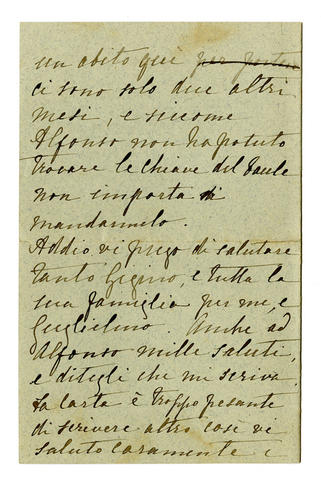 un abito qui per portar
ci sono solo due altri
mesi, e siccome
Alfonso non ha potuto
trovare le chiave del baule
non importa di
mandarmelo.
Addio vi prego di salutare
tanto Gigino, e tutta la
sua famiglia per me, e
Guglielmo. Anche ad
Alfonso mille saluti,
e ditegli che mi scriva.
La carta è troppo pesante
di scrivere altro così vi
saluto caramente e